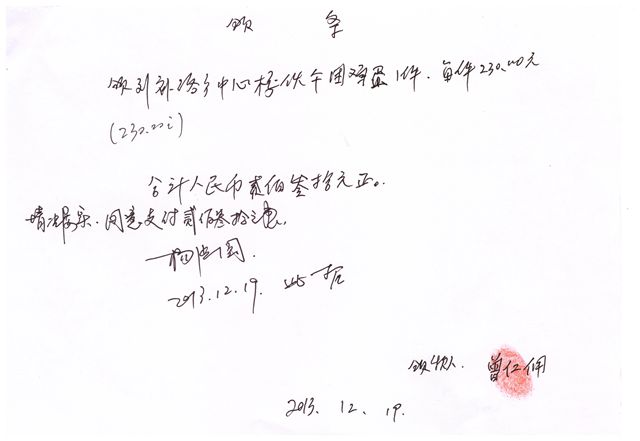 领 条
领到补洛乡中心校伙食团鸡蛋1件.每件230.00元
(230.00元)
合计人民币贰佰叁拾元正。
情况属实.同意支付贰佰叁拾元
2013.12.19. 此据
领款人. 曾仁佣
2013. 12. 19.